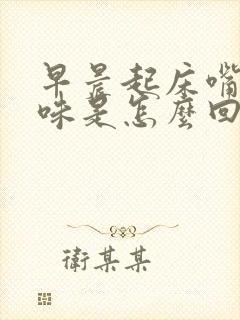 早晨起床嘴
味是怎麼回
衛某某